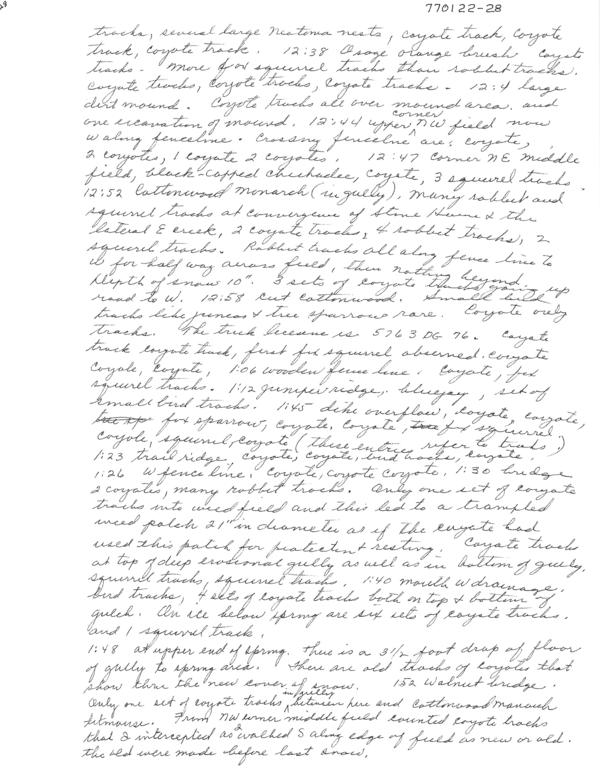 770122-28
tracks, several large Neotoma nests, coyote track, coyote
track, coyote track. 12:38 Osage orange brush coyote
tracks. More fox squirrel tracks than rabbit tracks.
Coyote tracks, coyote tracks, coyote tracks. 12:4 large
dirt mound. Coyote tracks all over mound area and
one excavation of mound. 12:44 upper corner NW field now
W along fenceline. Crossing fenceline are: coyote,
2 coyotes, 1 coyote 2 coyotes. 12:47 Corner NE middle
field, black-capped chickadee, coyote, 3 squirrel tracks.
12:52 Cottonwood Monarch (in gully). Many rabbit and
squirrel tracks at convergence of Stone House & the
lateral E creek, 2 coyote tracks, 4 rabbit tracks, 2
squirrel tracks. Rabbit tracks all along fence line to
W for half way across field, then nothing beyond.
Depth of snow 10". 3 sets of coyote tracks going up
road to W. 12:58 Cut cottonwood. Small bird
tracks like juncos & tree sparrow rare. Coyote only
tracks. The truck license is 5763 DG 76. Coyote
track coyote track, first fox squirrel observed. coyote
coyote, coyote, 1:06 wooden fence line. Coyote, fox
squirrel tracks. 1:12 juniper ridge, bluejay, set of
small bird tracks. 1:45 dike overflow, coyote, coyote,
fox sparrow, coyote, coyote, fox squirrel,
coyote, squirrel, coyote (these entries refer to tracks)
1:23 trail ridge, coyote, coyote, bird tracks, coyote.
1:26 W fence line, Coyote, coyote coyote. 1:30 bridge
2 coyotes, many rabbit tracks. Only one set of coyote
tracks into weed field and this led to a trampled
weed patch 21" in diameter as if the coyote had
used this patch for protection & resting. Coyote tracks
at top of deep erosional gully as well as in bottom of gully.
squirrel tracks, squirrel tracks. 1:40 mouth W drainage.
bird tracks, 4 sets of coyote tracks both on top & bottom of
gulch. On ice below spring are six sets of coyote tracks.
and 1 squirrel track.
1:48 at upper end of spring. There is a 3 1/2 foot drop of floor
of gully to spring area. There are old tracks of coyotes that
show thru the new cover of snow. 152 Walnut bridge.
Only one set of coyote tracks in gully between here and Cottonwood Monarch
titmouse. From NW corner middle field counted coyote tracks
that I intercepted as I walked S along edge of field as new or old.
The old were made before last snow.